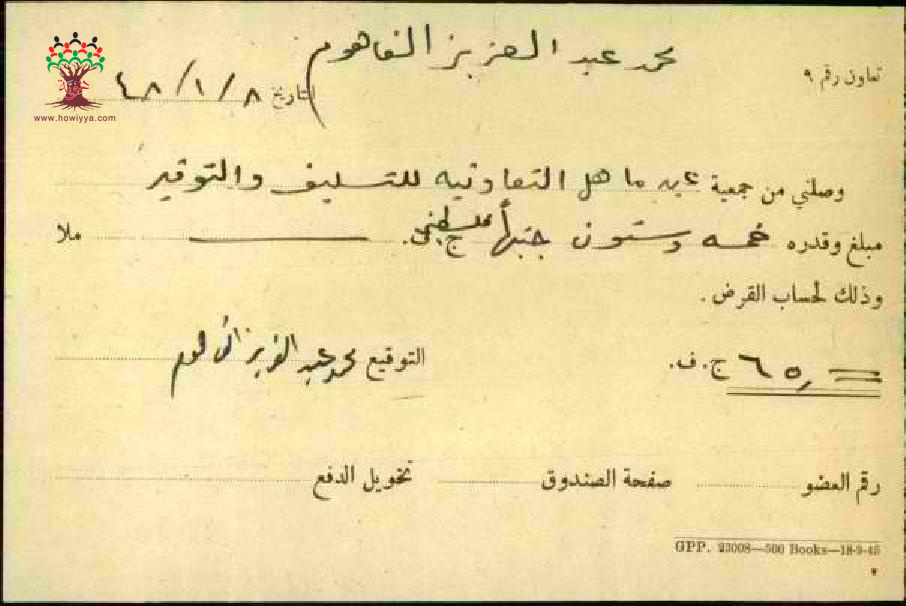 محمد عبد العزيز الفاهوم
تعاون رقم ٩
www.howiyya.com
التاريخ ٨/١/٤٨
وصلني من جمعية عين ماهل التعاونيه للتسليف والتوفير
مبلغ وقدره خمسه وستون جنيهاً فلسطيني ج. ملا
وذلك لحساب القرض.
٦٥, ج.ف.
التوقيع محمد عبد العزيز الفاهوم
رقم العضو صفحة الصندوق تخويل الدفع
GPP. 23008—500 Books—18-9-45
٢